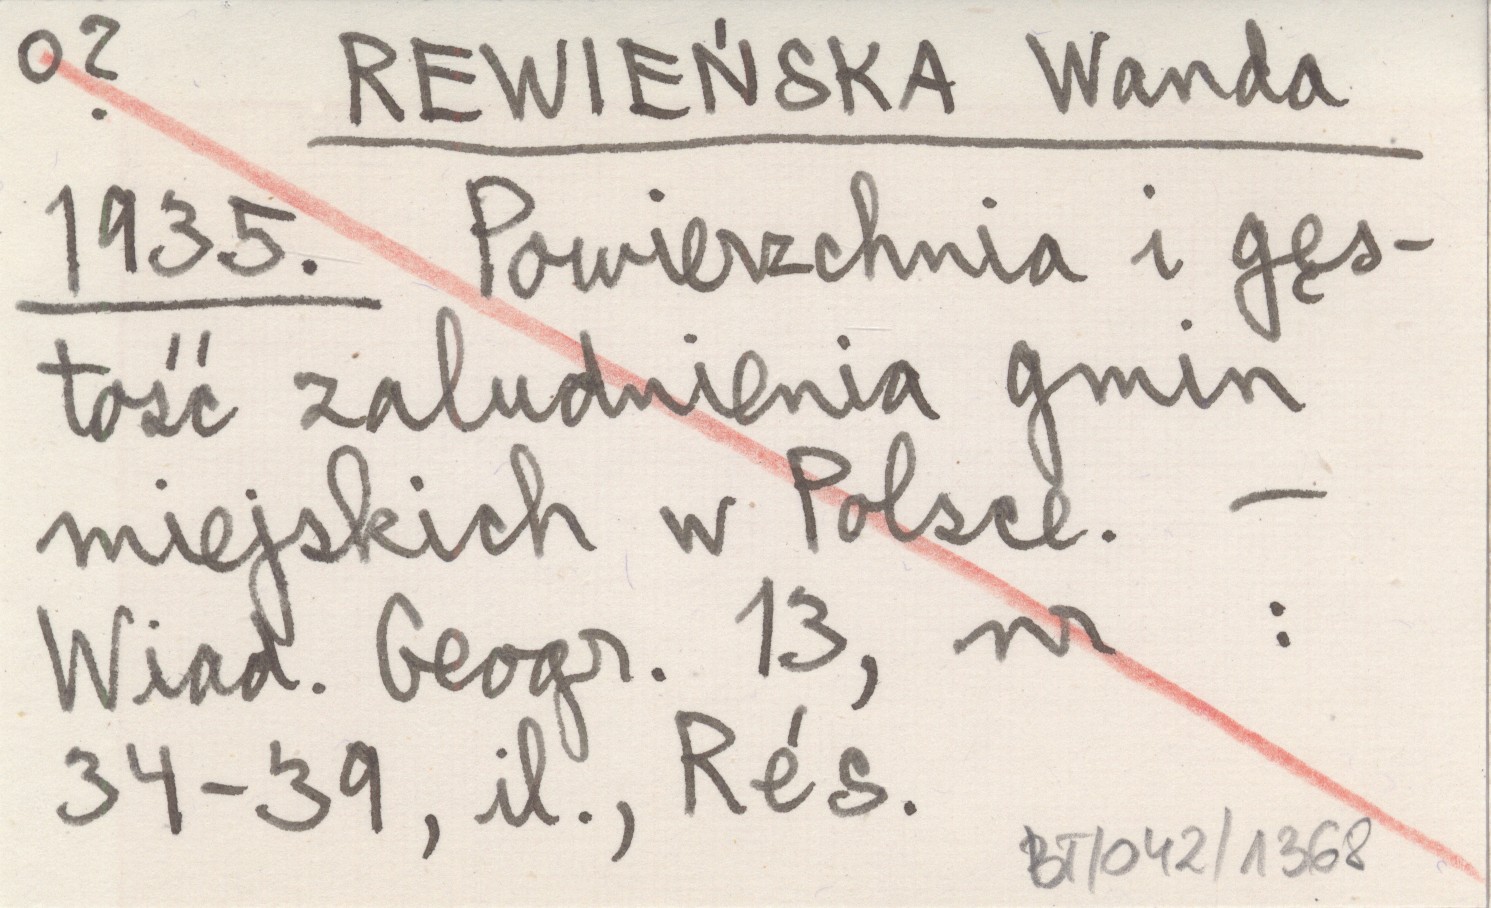 o?
REWIEŃSKA Wanda
1935. Powierzchnia i gęs-
tość zaludnienia gmin
miejskich w Polsce. —
Wiad. Geogr. 13, nr :
34-39, il., Rés.
BT/042/1368